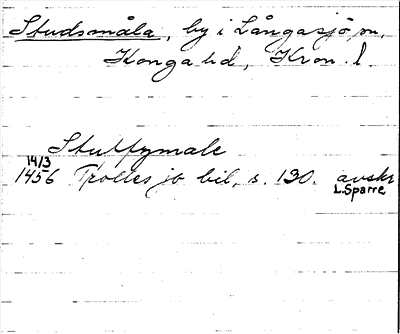 Studsmåla, by i Långasjö sn,
Konga hd, Kron. l.
Stutzmale
14/3
1456 Trolles jb bil, s. 130. avskr
L. Sparre